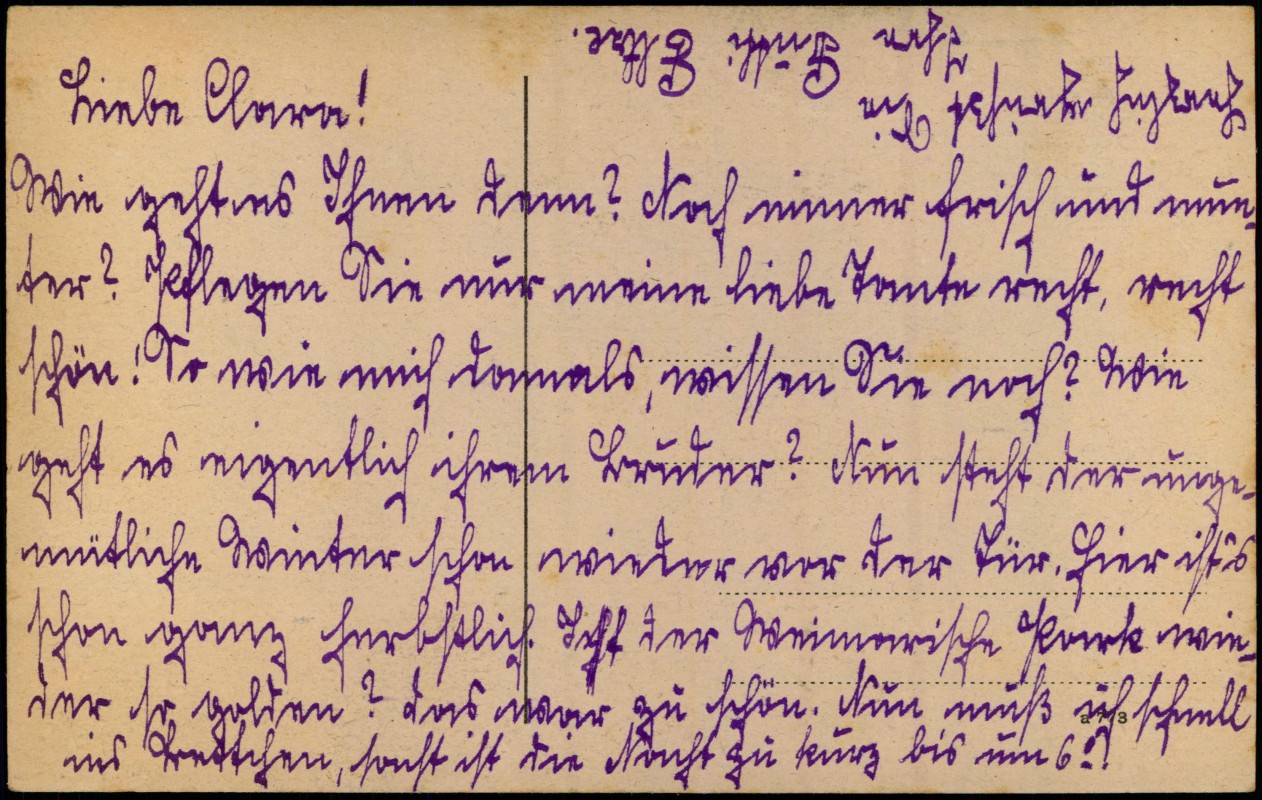 Liebe Clara!
Wie geht es Ihnen denn? Noch immer frisch und mun-
ter? Pflegen Sie nur meine liebe Tante recht, recht
schön! So wie mich damals, wissen Sie noch? Wie
geht es eigentlich ihrem Bruder? Nun steht der unge-
mütliche Winter schon wieder vor der Tür. Hier ist's
schon ganz herbstlich. Ist der Weimarische Park wie-
der so golden? das war zu schön. Nun muß ich schnell
ins Bettchen, sonst ist die Nacht zu kurz bis um 6°!
a 773
Herzlich grüßt Sie
Ihre